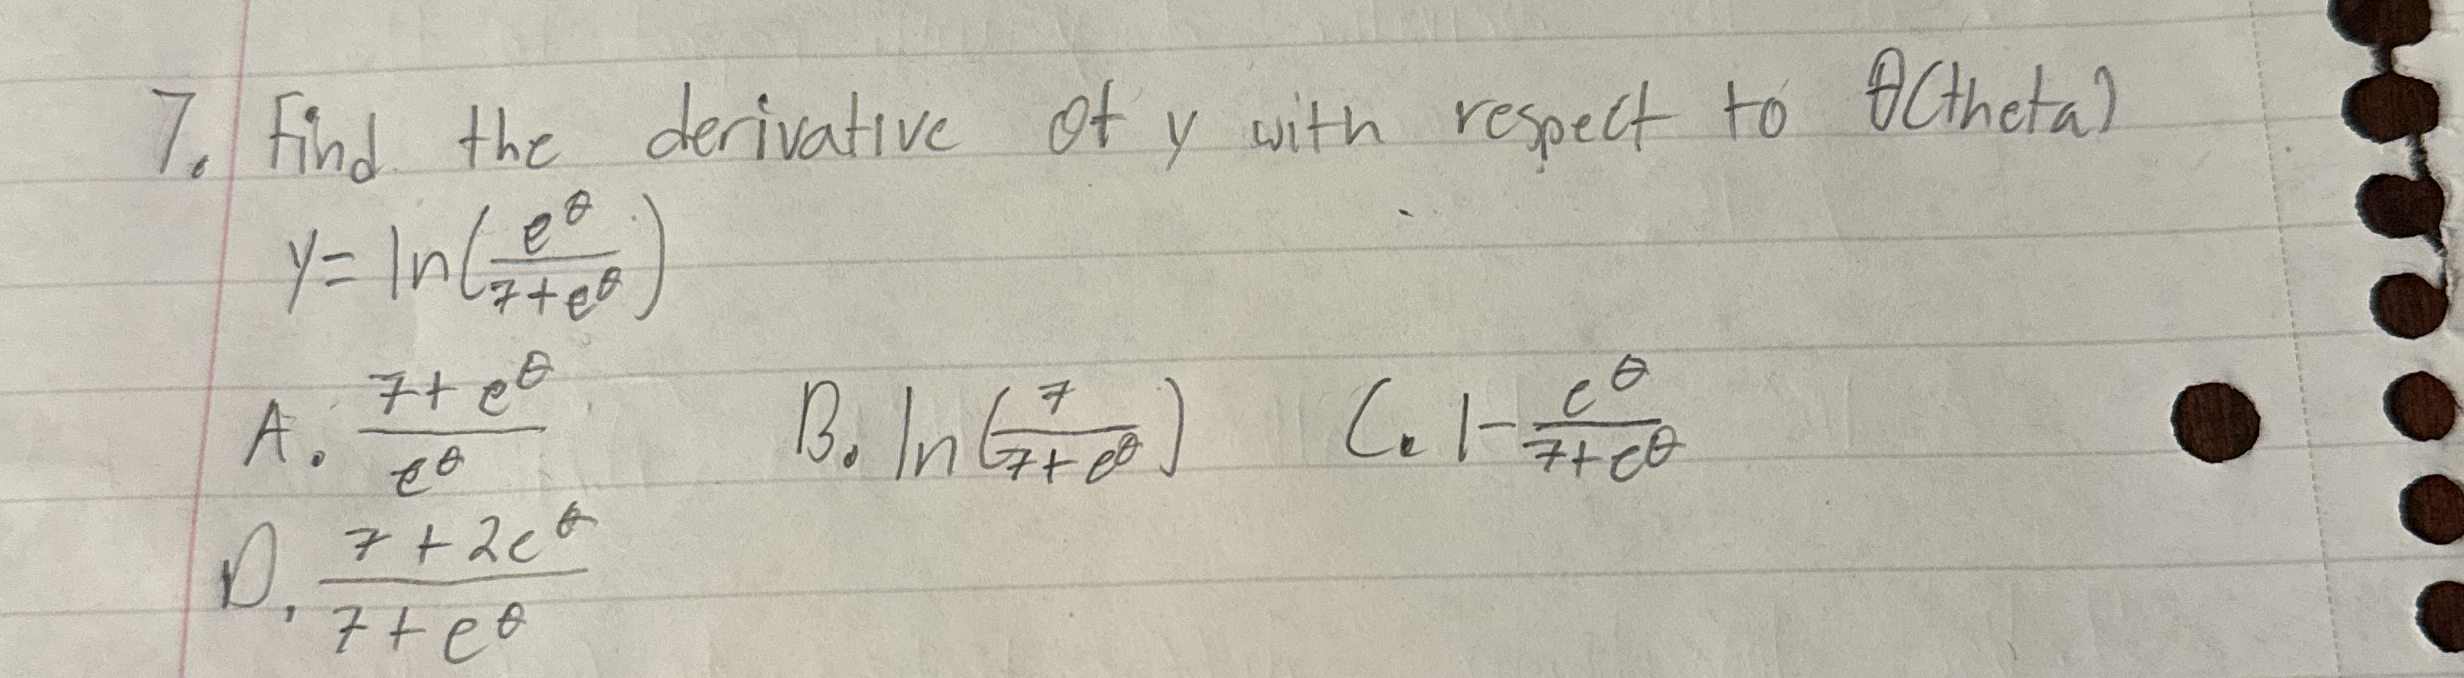 7. Find the derivative of y with respect to θ(theta)
y = ln(e^θ/(7+e^θ))
A. (7+e^θ)/e^θ B. ln(7/(7+e^θ)) C. 1-e^θ/(7+e^θ)
D. (7+2e^θ)/(7+e^θ)